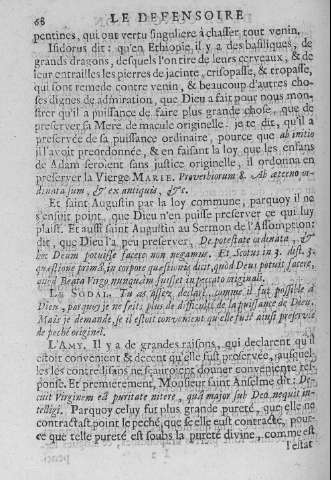 68 LE DEFENSOIRE
pentines, qui ont vertu singuliere à chasser tout venin.
Isidorus dit : qu'en Ethiopie, il y a des basiliques, de
grands dragons, desquels l'on tire de leurs cerveaux, & de
leur entrailles les pierres de jacinte, crisopasse, & tropasse,
qui sont remede contre venin, & beaucoup d'autres choses
dignes de admiration, que Dieu a fait pour nous monstrer
qu'il a puissance de faire plus grande chose, que de
preserver sa Mere de macule originelle. je te dit, qu'il a
preservée de sa puissance ordinaire, pource que ab initio
il l'avoit preordonnée, & en faisant la loy que les enfans
de Adam seroient sans justice originelle, il ordonna en
preserver la Vierge MARIE. Proverbiorum 8. Ab æterno ordinata
sum, & ex antiquis, &c.
Et saint Augustin par la loy commune, parquoy il ne
s'ensuit point, que Dieu n'en puisse preserver ce qui luy
plaist. Et aussi saint Augustin au Sermon de l'Assomption:
dit, que Dieu l'a peu preserver, De potestate ordenata, &
hoc Deum potuisse facere non negamus. Et Scotus in 3. dist. 3.
quæstione primâ, in corpore quæstionis dicit, quòd Deus potuit facere,
quòd Beata Virgo nunquam fuisset in peccato originali.
LE SODAL. Tu as assez declaré, comme il fut possible à
Dieu, parquoy je ne faits plus de difficulté de la puissance de Dieu,
Mais je demande, se il estoit convenient qu'elle fust ainsi preservée
de peché originel.
L'AMY. Il y a de grandes raisons, qui declarent qu'il
estoit convenient & decent qu'elle fust preservée, ausquelles
les contredisans ne sçauroient donner conveniente response.
Et premierement, Monsieur saint Anselme dit : Decuit
Virginem eâ puritate nitere, quâ major sub Deo nequit intelligi.
Parquoy celuy fut plus grande pureté, que elle ne
contractast point le peché, que se elle eust contracté, pource
que telle pureté est soubs la pureté divine, comme est
l'estat